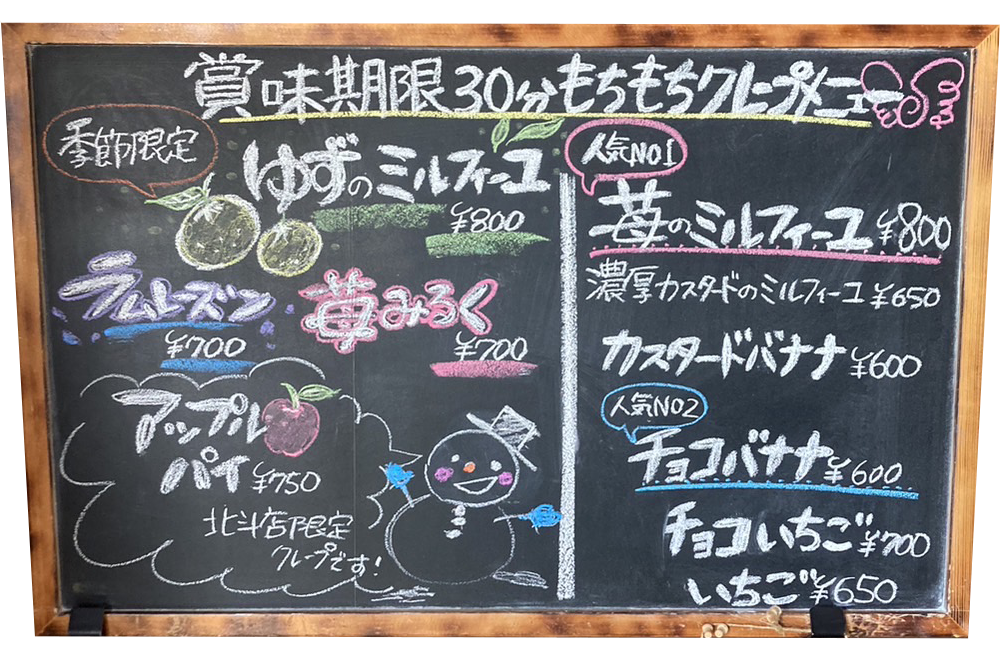 賞味期限30分もちもちクレープメニュー
季節限定
ゆずのミルフィーユ
¥800
ラムレーズン
¥700
苺みるく
¥700
アップル
パイ ¥750
北斗店限定
クレープです!
人気NO1
苺のミルフィーユ ¥800
濃厚カスタードのミルフィーユ ¥650
カスタードバナナ ¥600
人気NO2
チョコバナナ ¥600
チョコいちご ¥700
いちご ¥650